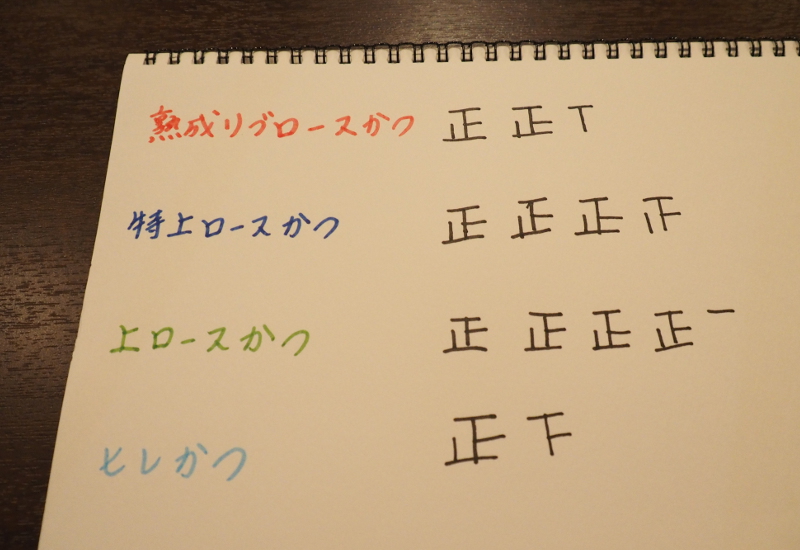 熟成リブロースかつ 正 正 丅
特上ロースかつ 正 正 正 𤴓
上ロースかつ 正 正 正 正 一
ヒレかつ 正 下